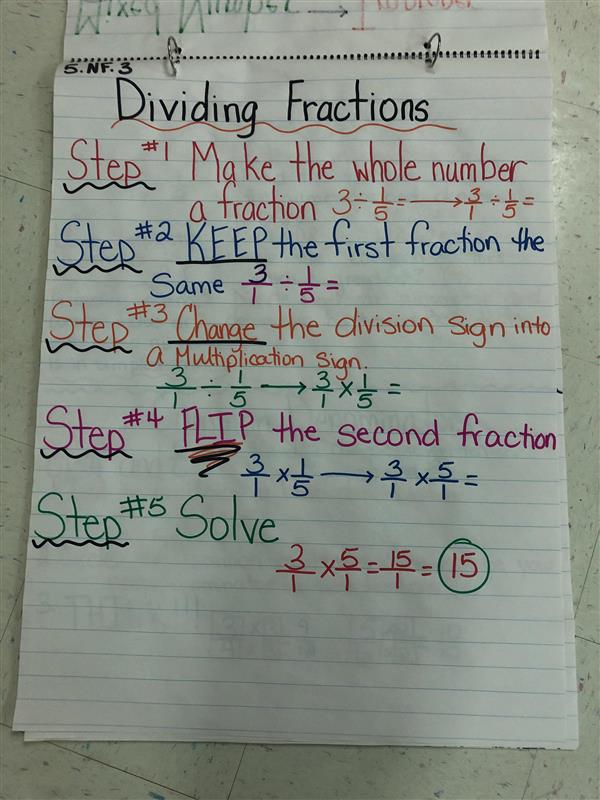 Mixed Number →
5.NF.3
Dividing Fractions
Step #1 Make the whole number
a fraction 3 ÷ 1/5 = → 3/1 ÷ 1/5 =
Step #2 KEEP the first fraction the
Same 3/1 ÷ 1/5 =
Step #3 Change the division sign into
a Multiplication sign.
3/1 ÷ 1/5 → 3/1 × 1/5 =
Step #4 FLIP the second fraction
3/1 × 1/5 → 3/1 × 5/1 =
Step #5 Solve
3/1 × 5/1 = 15/1 = 15